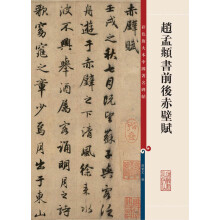 彩色放大本中國著名碑帖
趙孟頫書前後赤壁賦
赤壁賦
壬戌之秋七月既望蘇子與客
舟遊於赤壁之下清風徐來水
波不興舉酒屬客誦明月之詩
歌窈窕之章少焉月出於東